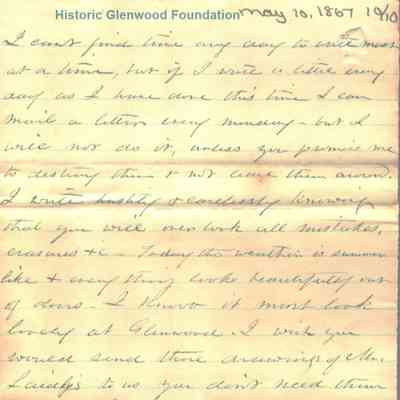 Historic Glenwood Foundation
May 10, 1867 10/10
I can't find time any day to write most
at a time, but if I write a little every
day as I have done this time I can
mail a letter every monday - but I
will not do it, unless you promise me
to destroy them & not leave them around.
I write hastily & carelessly knowing
that you will over look all mistakes,
erasures &c - Today the weather is summer
like & every thing looks beautifully out
of doors - I know it must look
lovely at Glenwood. I wish you
would send those drawings of Mr.
to us you don't need them